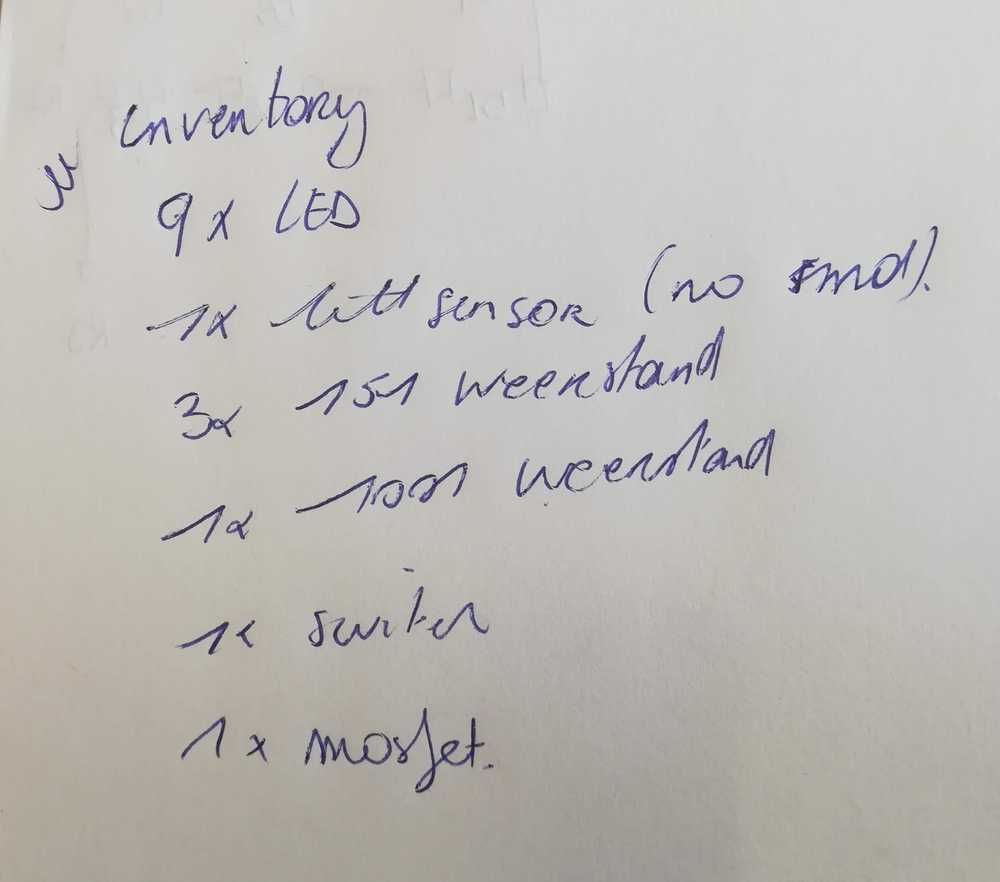 inventory
9x LED
1x sensor (no smd).
3x 151 weerstand
1x 1001 weerstand
1x switch
1x mosfet.